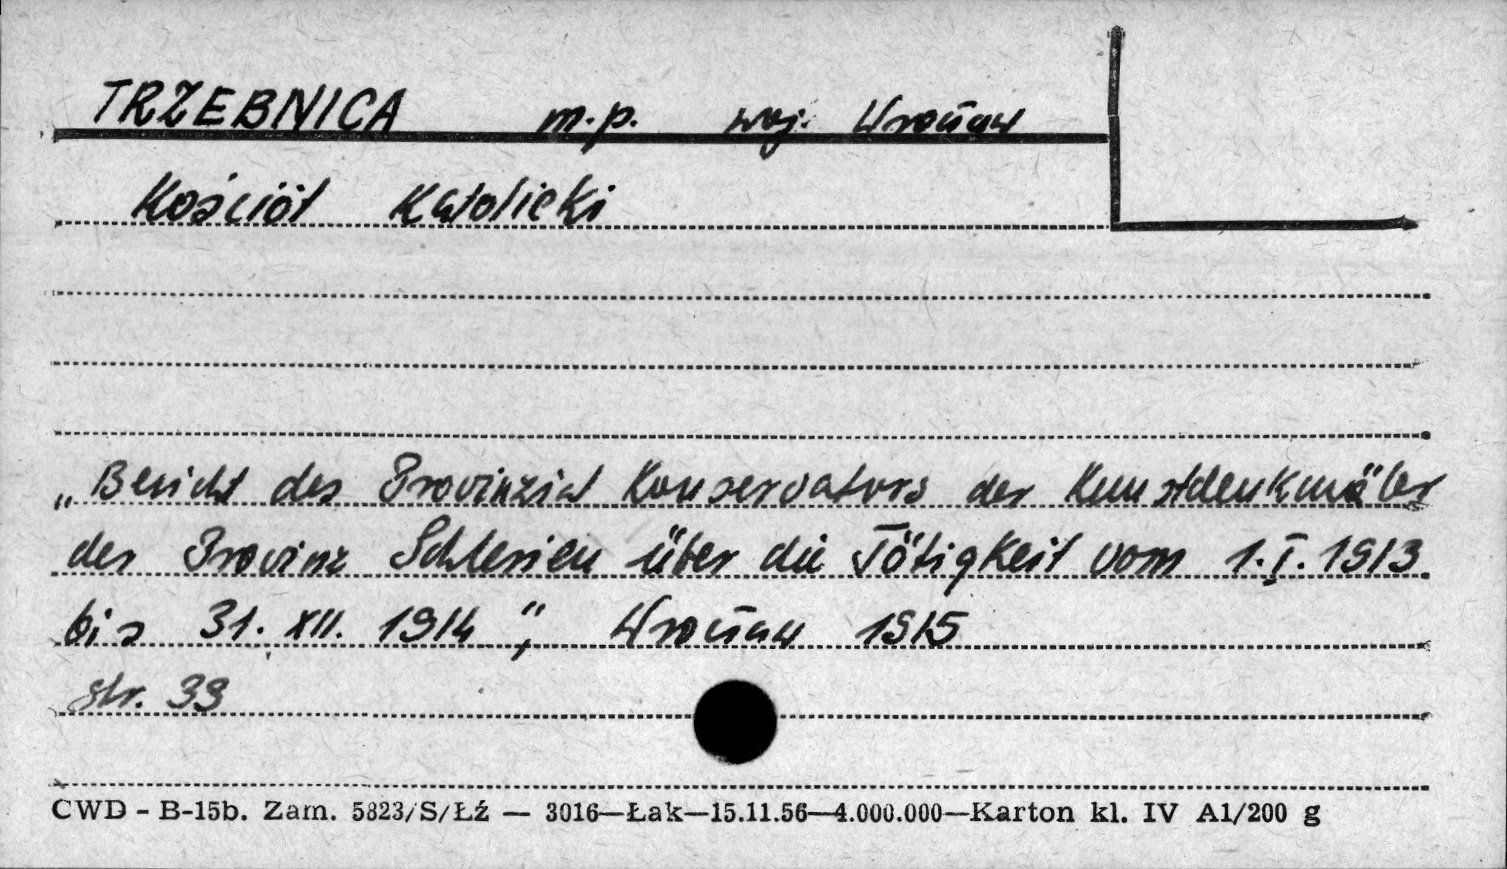 TRZEBNICA m.p. woj. Wrocław
Kościół Katolicki
„Bericht des Provinzial Konservators der Kunstdenkmäler
der Provinz Schlesien über die Tätigkeit vom 1.I.1913
bis 31. XII. 1914", Wrocław 1915
str. 39
CWD - B-15b. Zam. 5823/S/Łź — 3016—Łak—15.11.56—4.000.000—Karton kl. IV A1/200 g